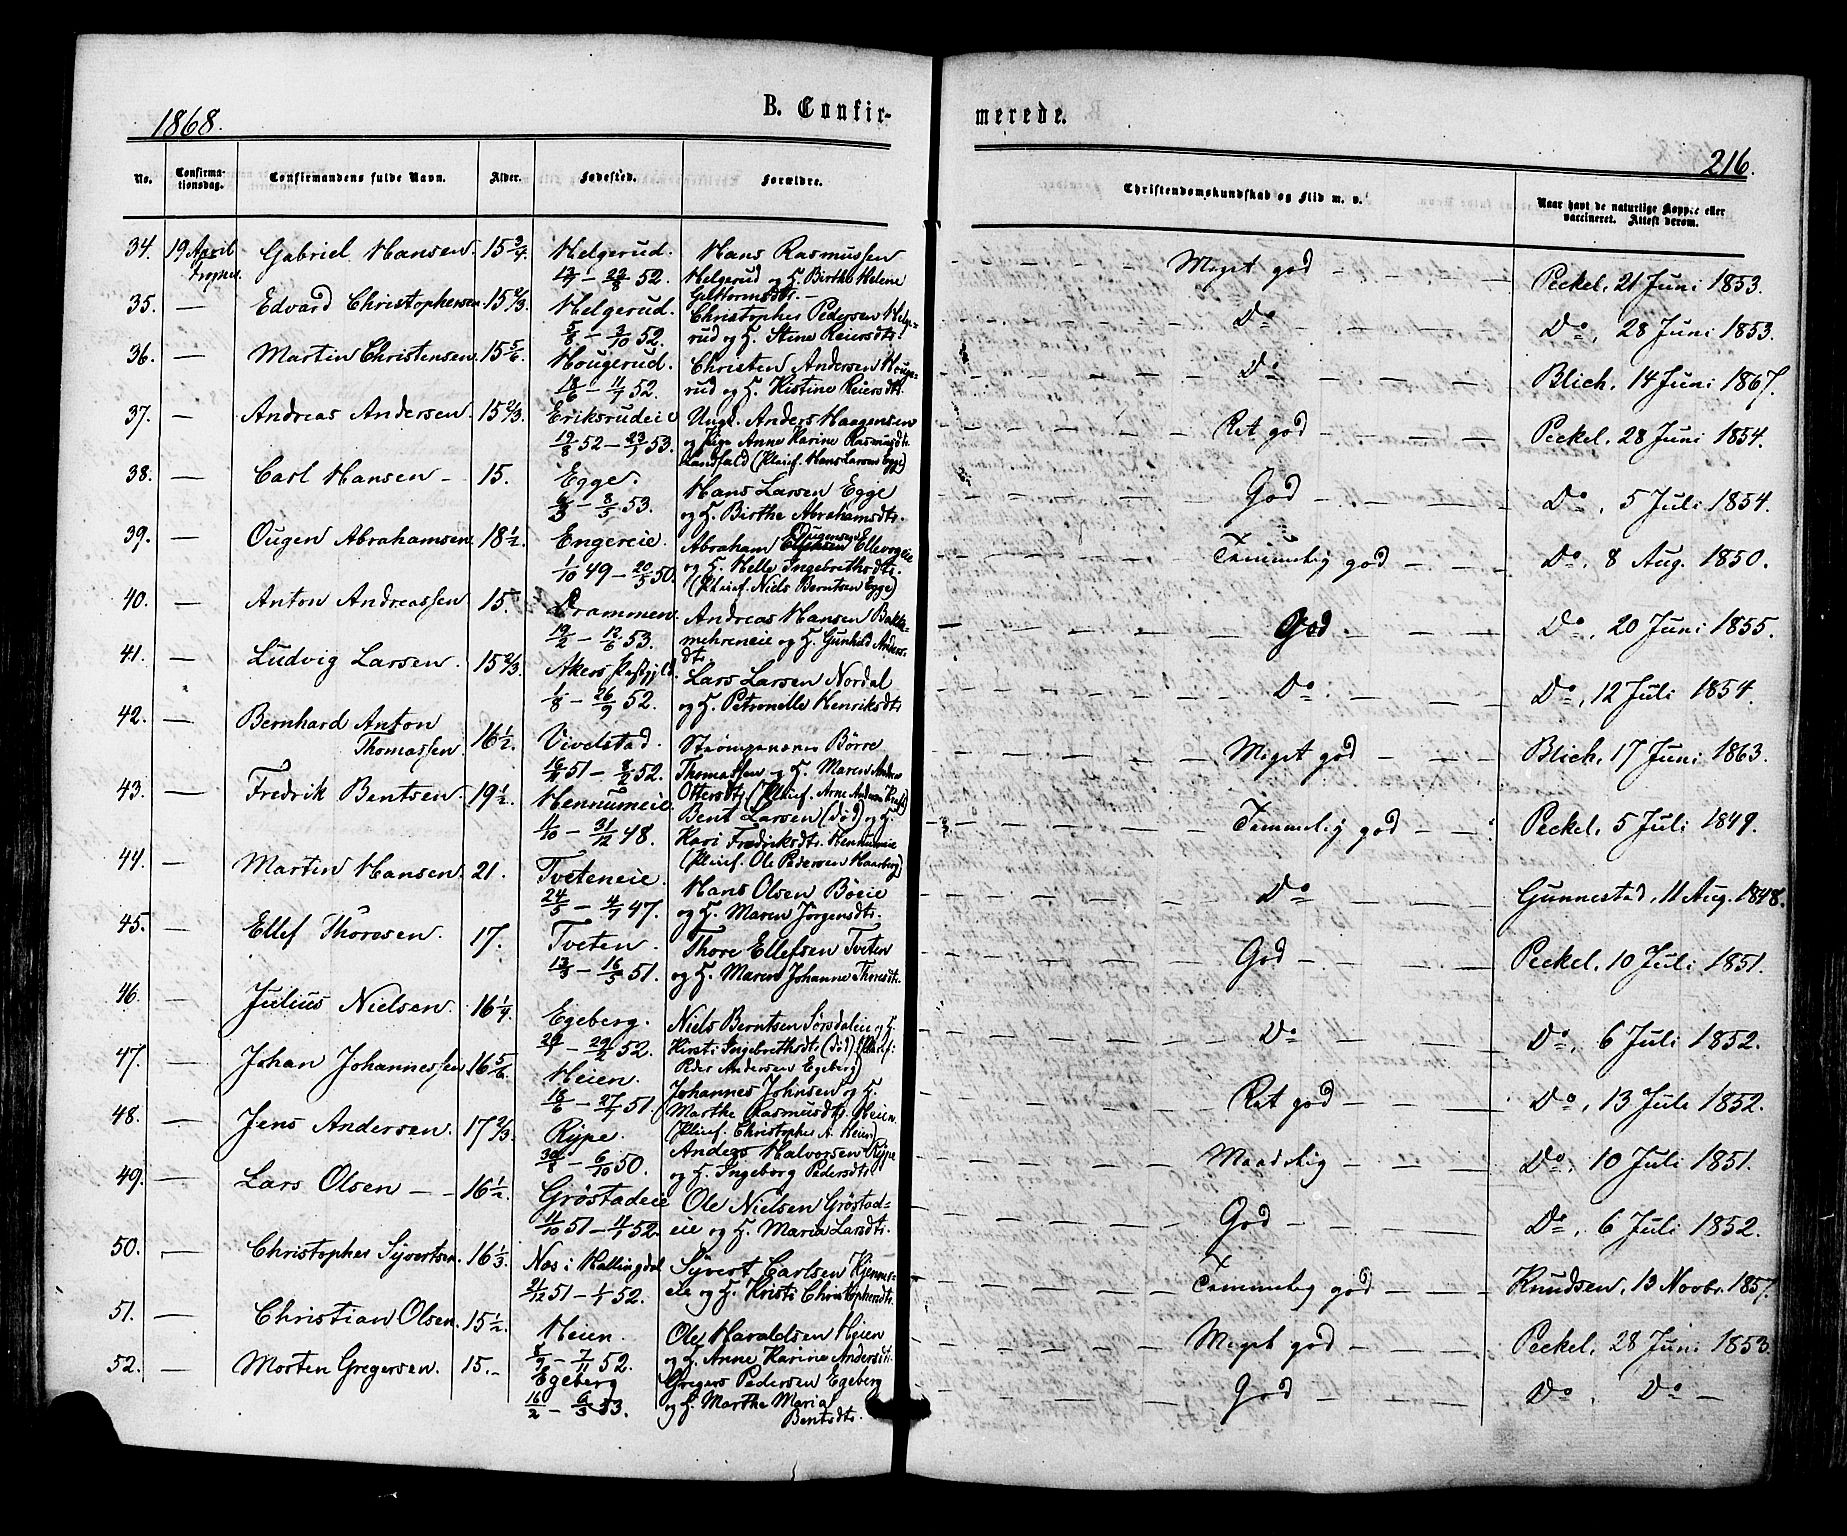 1868.
B. Confir-
merede.
216.
No.
Confirma-
tionsdag.
Confirmandens fulde Navn.
Alder.
Fødested.
Forældre.
Christendomskundskab og Flid m. v.
Naar havt de naturlige Kopper eller
vaccineret. Attest derom.
34. 19 April Gabriel Hansen 15 3/4 Helgerud. Hans Rasmussen
Helgerud og H. Birthe Helene
Guttormsdtr. Meget god Peckel, 21 Juni 1853.
35. — Edvard Christophersen 15 2/3. Helgerud. Christopher Pedersen Helge-
5/8 – 3/10 52. rud og H. Stine Reiersdtr. Do Do, 28 Juni 1853.
36. — Martin Christensen 15 5/6. Hougerud. Christen Andersen Houge-
13/6 – 11/7 52. rud og H. Kistine Reiersdtr. Do Blich, 14 Juni 1867.
37. — Andreas Andersen. 15 2/3. Eriksrudeie Ungk. Anders Haagensen
19/8 52 – 23/1 53. og Pige Anne Karine Rasmusdtr.
Landfald (Pleief. Hans Larsen Egge) Ret god Peckel, 28 Juni 1854.
38. — Carl Hansen – 15. Egge. Hans Larsen Egge
6/3 – 8/5 53. og H. Birthe Abrahamsdtr. God Do, 5 Juli 1854.
39. — Ougen Abrahamsen 18 1/2. Engereie. Abraham Ougensen Ellevogeie
1/10 49 – 20/5 50. og H. Helle Ingebrethsdtr.
(Pleief. Niels Berntsen Egge) Temmelig god Do, 8 Aug. 1850.
40. — Anton Andreassen 15. Drammen. Andreas Hansen Bakke-
19/2 – 12/6 53. mehreneie og H. Gunhild Anders-
dtr. God Do, 20 Juni 1855.
41. — Ludvig Larsen. 15 2/3. Akers Præstgjld. Lars Larsen Nordal
1/8 – 26/9 52. og H. Petronelle Henriksdtr. Do Do, 12 Juli 1854.
42. — Bernhard Anton
Thomassen 16 1/2. Vivelstad. Børre
51 – 8/2 52. Thomassen og H. Maren Andrea
Ottersdtr. (Pleief. Arne Andersen) Meget god Blich, 17 Juni 1863.
43. — Fredrik Bentsen 19 1/2. Hennumeie Bent Larsen (død) og H.
11/10 – 31/12 48. Kari Fredriksdtr. Hennumeie
(Pleief. Ole Pedersen Haarberg) Temmelig god Peckel, 5 Juli 1849.
44. — Martin Hansen 21. Tveteneie. Hans Olsen Bøeie
24/5 – 4/7 47. og H. Maren Jørgensdtr. Do Gunnestad, 11 Aug. 1848.
45. — Ellef Thoresen. 17. Tveten. Thore Ellefsen Tveten
13/3 – 16/5 51. og H. Maren Johanne Thoresdtr. God Peckel, 10 Juli 1851.
46. — Julius Nielsen 16 1/4. Egeberg. Niels Berntsen Sørsdaleie og H.
52. Kirsti Ingebrethsdtr. (død) (Pleief:
Peder Andersen Egeberg) Do Do, 6 Juli 1852.
47. — Johan Johannessen 16 5/6. Heien. Johannes Johnsen og H.
16/6 – 27/7 51. Marthe Rasmusdtr. Heien.
(Pleief. Christopher A. Heien) Ret god Do, 13 Juli 1852.
48. — Jens Andersen. 17 2/3. Rÿpe. Anders Halvorsen Rÿpe
30/8 – 6/10 50. og H. Ingeborg Pedersdtr. Maadelig Do, 10 Juli 1851.
49. — Lars Olsen – – 16 1/2. Grøstadeie Ole Nielsen Grøstad-
11/10 51 – 4/1 52. eie og H. Maria Larsdtr. God Do, 6 Juli 1852.
50. — Christopher Sÿvertsen. 16 1/3. Næs i Hallingdal Sÿvert Carlsen Kjennes-
21/12 51 – 1/1 52. eie og H. Kristi Christophersdtr. Temmelig god Knudsen, 13 Novbr. 1857.
51. — Christian Olsen. 15 1/2. Heien. Ole Haraldsen Heien
8/9 – 7/11 52. og H. Anne Karine Andersdtr. Meget god Peckel, 28 Juni 1853.
52. — Morten Gregersen. 15. – Egeberg Gregers Pedersen Egeberg
16/2 – 6/3 53. og H. Marthe Maria
Bentsdtr. God Do, Do –